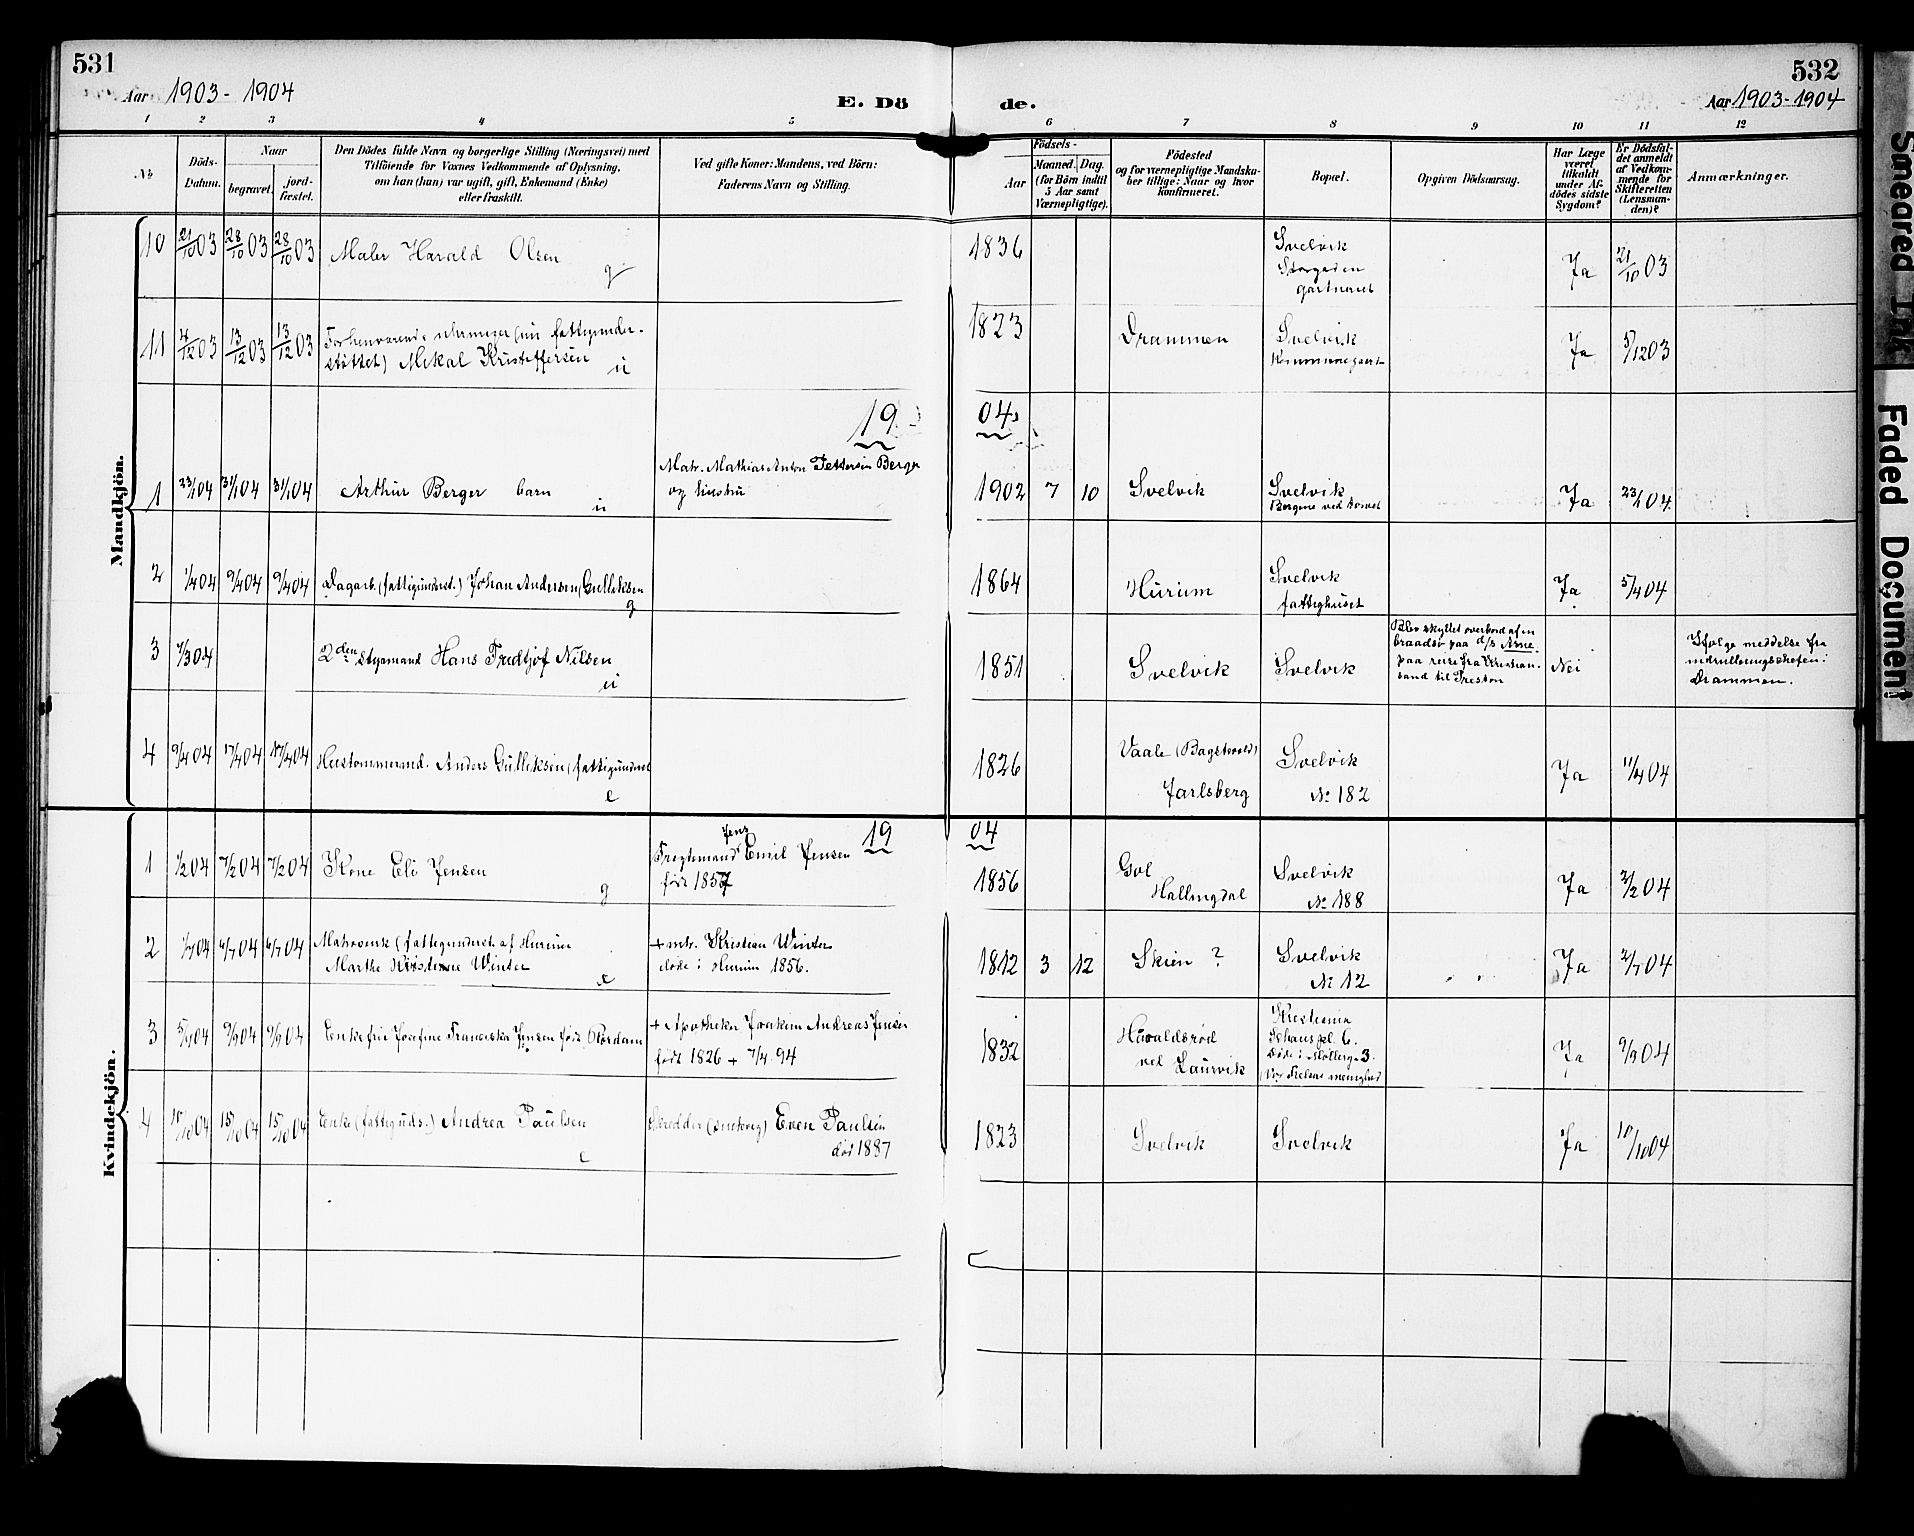 531
Aar 1903-1904
E. Dö
de.
532
Aar 1903-1904
1 2 3 4 5 6 7 8 9 10 11 12
No
Döds-
Datum.
Naar
begravet.
jord-
fæstet.
Den Dödes fulde Navn og borgerlige Stilling (Næringsvei) med
Tilföiende for Voxnes Vedkommende af Oplysning,
om han (hun) var ugift, gift, Enkemand (Enke)
eller fraskilt.
Ved gifte Koner: Mandens, ved Börn:
Faderens Navn og Stilling.
Födsels-
Aar
Maaned. Dag.
(for Börn indtil
5 Aar samt
Værnepligtige).
Födested
og for værnepligtige Mandska-
ber tillige: Naar og hvor
konfirmeret.
Bopæl.
Opgiven Dödsaarsag.
Har Læge
været
tilkaldt
under Af-
dödes sidste
Sygdom?
Er Dödsfal-
det anmeldt
af Vedkom-
mende for
Skifteretten
(Lensman-
den)?
Anmærkninger.
Mandkjön.
10 21/10 03 28/10 03 28/10 03 Maler Harald Olsen g
1836 Svelvik
Storgaden
gartneret
Ja 21/10 03
11 4/12 03 13/12 03 13/12 03 Forhenværende (nu fattigunder-
støttet) Mikal Kristoffersen u
1823 Drammen Svelvik
Kommunegaard
Ja 5/12 03
1904
1 23/1 04 31/1 04 31/1 04 Arthur Berger barn u
Matr. Mathias Anton Pettersen Berger
og hustru
1902 7 10 Svelvik Svelvik
Bergene ved
Ja 23/1 04
2 1/4 04 9/4 04 9/4 04 Dagarb. (fattigunderst.) Johan Andersen (Gulliksen g
1864 Hurum Svelvik
fattighuset
Ja 5/4 04
3 7/3 04 2den Styrmand Hans Fredtjof Nilsen u
1851 Svelvik Svelvik
Blev skyllet overbord af en
braadsø paa d/s Arne
paa reise fra Kristian-
sand til Preston
Nei
Ifølge meddelse fra
indrulleringschefen i
Drammen.
4 9/4 04 17/4 04 17/4 04 Hustømmermd. Anders Gulliksen (fattigunderst e
1826 Vaale
Jarlsberg
Svelvik
No 182
Ja 11/4 04
Kvindekjön.
1904
1 1/2 04 7/2 04 7/2 04 Kone Eli Jensen g
Jens
Fragtemand Emil Jensen
født 1857
1856 Gol
Hallingdal
Svelvik
No 188
Ja 3/2 04
2 1/7 04 6/7 04 6/7 04 Matrosenk. (fattigunderst. af Hurum
Marthe Kristence Winter e
+ mtr. Kristian Winter
døde i Hurum 1856.
1812 3 12 Skien ? Svelvik
No 12
Ja 2/7 04
3 5/9 04 9/9 04 9/9 04 Enkefru Josefine Franciska Jensen født Rørdam
+ Apotheker Joakim Andreas Jensen
født 1826 + 7/4 94
1832 Haraldsrød
ved Laurvik
Kristiania
Schouspl. 6.
Døde i Møllerg. 3.
(Vor Frelsers menighed
Ja 9/9 04
4 10/10 04 15/10 04 15/10 04 Enke (fattigunds.) Andrea Paulsen e
Skrædder Even Paulsen
død 1887
1823 Svelvik Svelvik
Ja 10/10 04
Smeared Ink
Faded Document